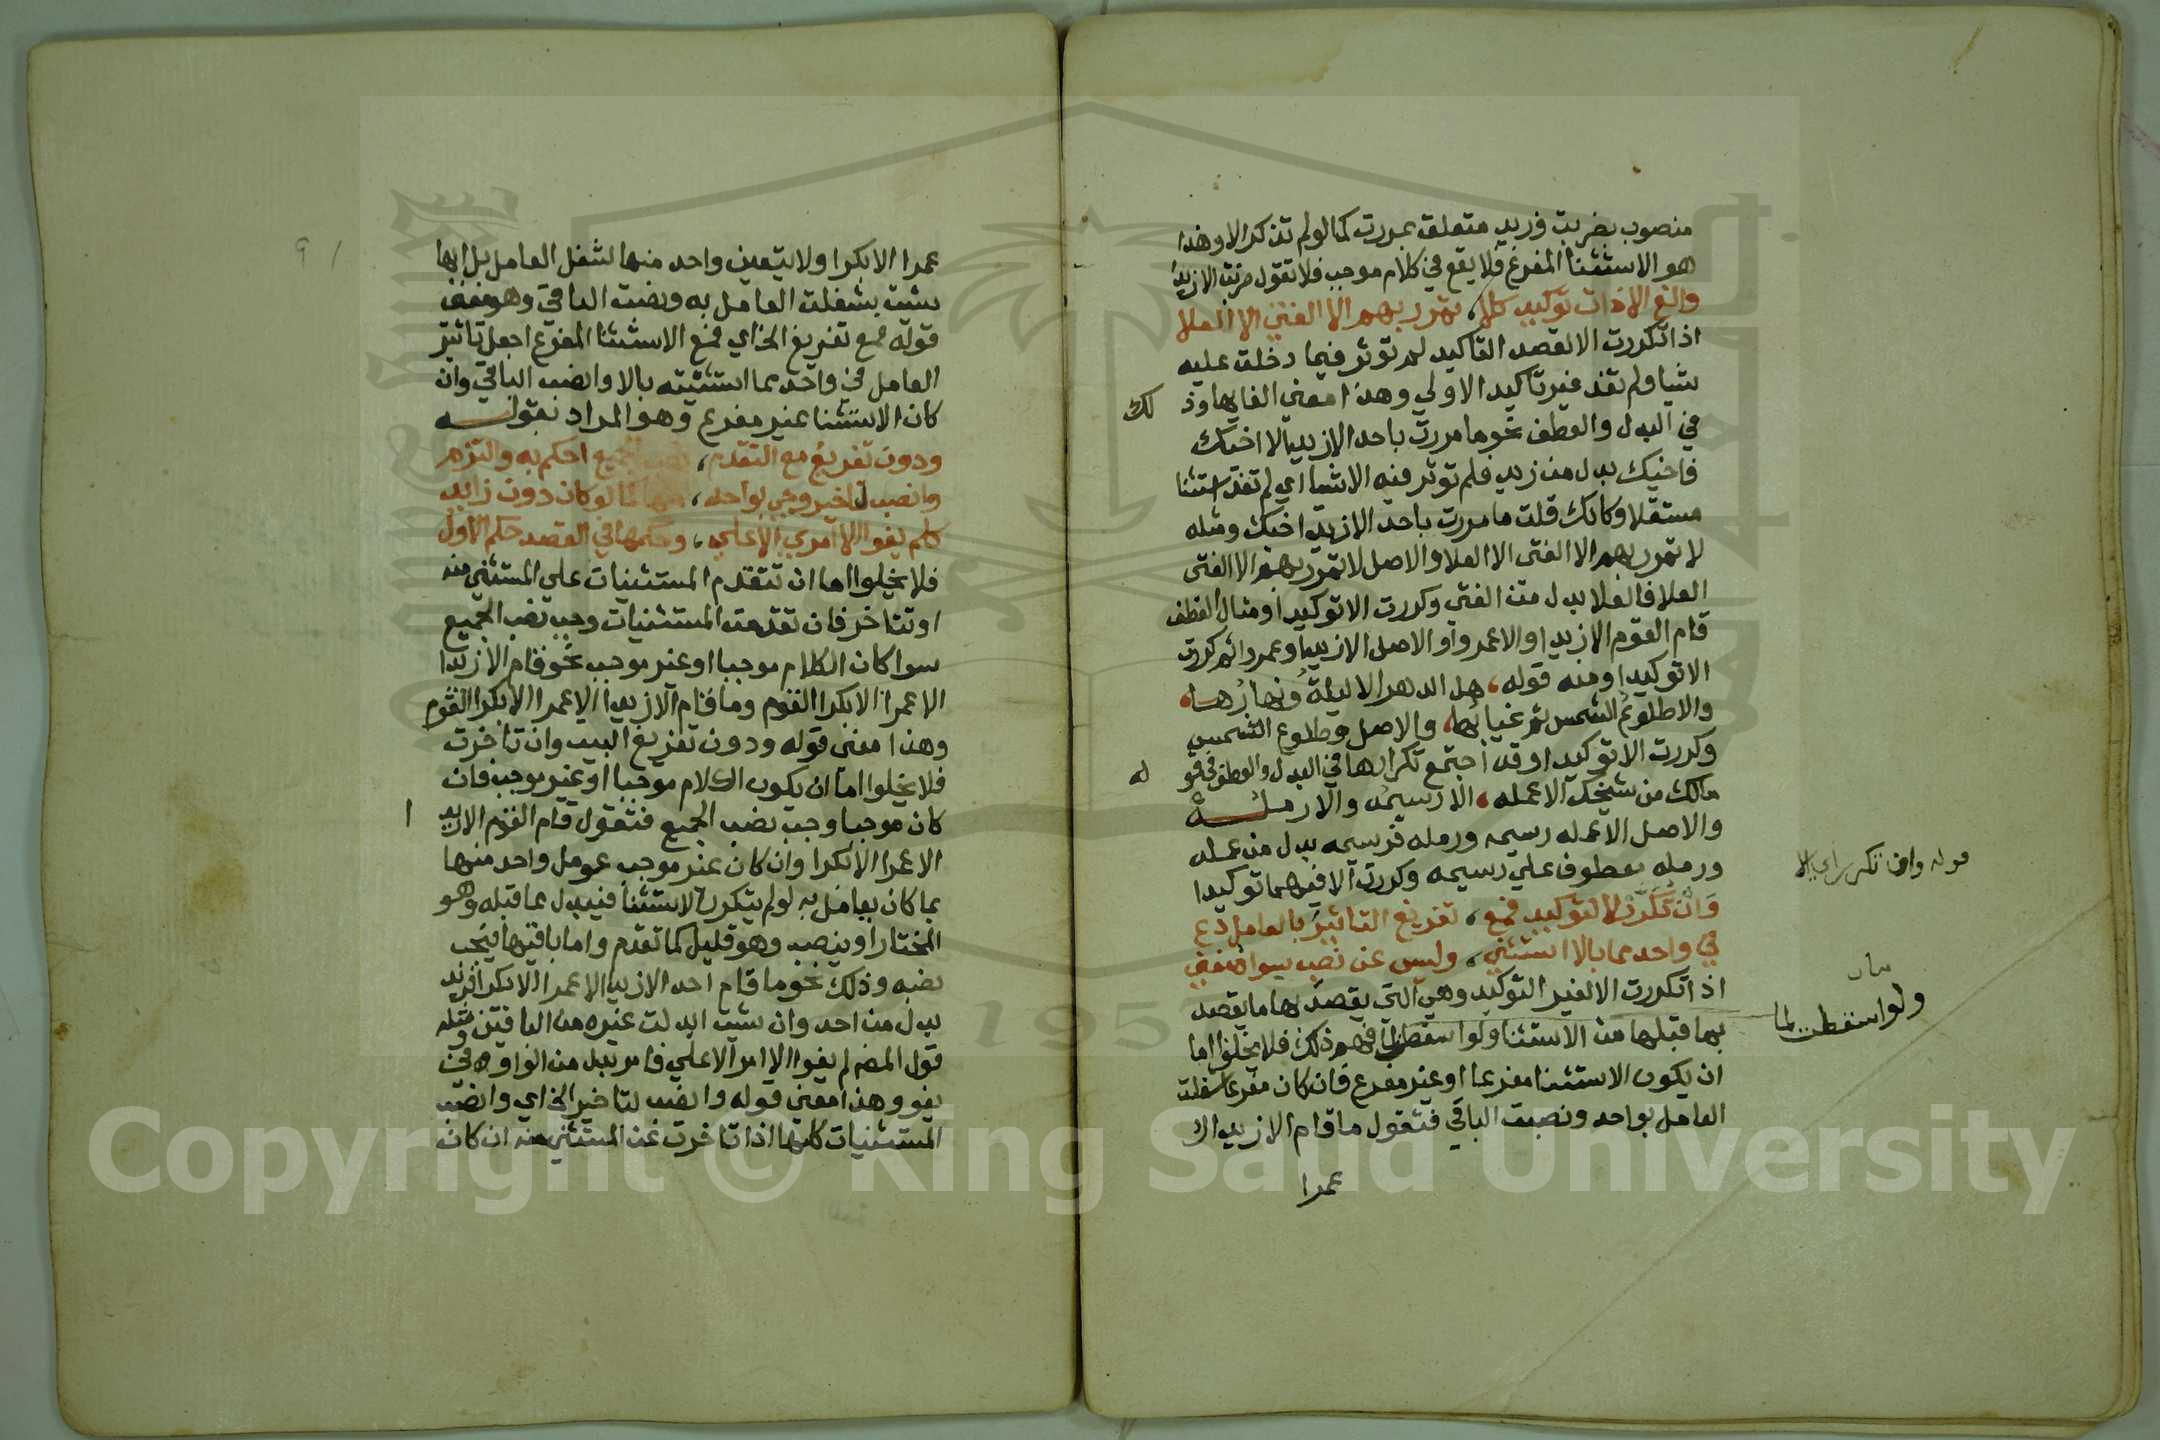 منصوب بضربت وزيد متعلق بمررت كما لو لم تذكر الا وهذا
هو الاستثنا المفرغ فلا يقع في كلام موجب فلا تقول ضربت الا زيدا
والغ الا ذات توكيد كلا، تمرر بهم الا الفتي الا العلا
اذا تكررت الا لقصد التاكيد لم توثر فيما دخلت عليه
شيا ولم تفد غير تاكيد الاولي وهذا معني الغايها وذ لك
في البدل والعطف نحو ما مررت باحد الا زيد الا اخيك
فاخيك بدل من زيد فلم توثر فيه الا شيا اي لم تفد استثنا
مستقلا وكانك قلت ما مررت باحد الا زيد اخيك ومثله
لا تمرر بهم الا الفتي الا العلا والاصل لا تمرر بهم الا الفتي
العلا فالعلا بدل من الفتي وكررت الا توكيدا ومثال العطف
قام القوم الا زيدا والا عمروا والاصل الا زيدا وعمروا ثم كررت
الا توكيدا ومنه قوله، هل الدهر الا ليلةٌ ونهارُها،
والا طلوعُ الشمس ثم غيابُها، والاصل وطلوع الشمس
وكررت الا توكيدا وقد اجتمع تكرارها في البدل والعطف في قو له
مالك من شيخك الا عمله، الا رسيمه والا رمله
والاصل الا عمله رسيمه ورمله فرسيمه بدل من عمله
ورمله معطوف علي رسيمه وكررت الا فيهما توكيدا
وان تكرر لا لتوكيد فمع، تفريغ التاثيرَ بالعامل دع
في واحد مما بالا استثني، وليس عن نصب سواه مغني
اذا تكررت الا لغير التوكيد وهي التي يقصد بها ما يقصد
بها قبلها من الاستثنا ولو اسقطت لما فهم ذلك فلا يخلوا اما
ان يكون الاستثنا مفرغا او غير مفرغ فان كان مفرغا شغلت
العامل بواحد ونصبت الباقي فتقول ما قام الا زيد الا
عمرا
قوله وان تكرر اي الا
بيان
ولو اسقطت لما
91
عمرا الا بكرا ولا يتعين واحد منها لشغل العامل بل ايها
شيت شغلت العامل به ونصبت الباقي وهو معني
قوله فمع تفريغ الخ اي فمع الاستثنا المفرغ اجعل تاثير
العامل في واحد مما استثنيته بالا وانصب الباقي وان
كان الاستثنا غير مفرغ وهو المراد بقوله
ودون تفريغ مع التقدم، نصب الجميع احكم به والتزم
وانصب لتاخير وجي بواحد، منها كما لو كان دون زايد
كلم يفوا الا امري الا علي، وحكمها في القصد حكم الاول
فلا يخلوا اما ان تتقدم المستثنيات علي المستثني منه
او تتاخر فان تقدمت المستثنيات وجب نصب الجميع
سوا كان الكلام موجبا او غير موجب نحو قام الا زيدا
الا عمرا الا بكرا القوم وما قام الا زيدا الا عمرا الا بكرا القوم
وهذا معني قوله ودون تفريغ البيت وان تاخرت
فلا يخلوا اما ان يكون الكلام موجبا او غير موجب فان
كان موجبا وجب نصب الجميع فتقول قام القوم الا زيد ا
الا عمرا الا بكرا وان كان غير موجب عومل واحد منها
بما كان يعامل به لو لم يتكرر الاستثنا فيبدل مما قبله وهو
المختار او ينصب وهو قليل كما تقدم واما باقيها فيجب
نصبه وذلك نحو ما قام احد الا زيد الا عمرا الا بكرا فزيد
بدل من احد وان شيت ابدلت غيره من الباقين ومثله
قول المص لم يفوا الا امر الا علي فامر بدل من الواو في
يفو وهذا معني قوله وانصب لتاخير الخ اي وانصب
المستثنيات كلها اذا تاخرت عن المستثني منه ان كان
Copyright © King Saud University